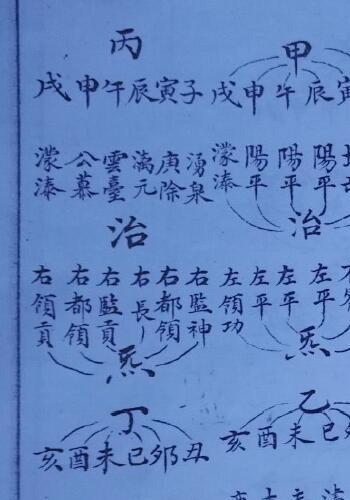 甲
辰
午
申
戌
陽平
陽平
陽平
濛溱
治
左平
左平
左平
左領功
炁
乙
巳
未
酉
亥
丙
子
寅
辰
午
申
戌
湧泉
庚除
雲臺
公慕
濛溱
治
右監神
右都領
右長
右監貢
右都領
右領貢
炁
丁
丑
卯
巳
未
酉
亥